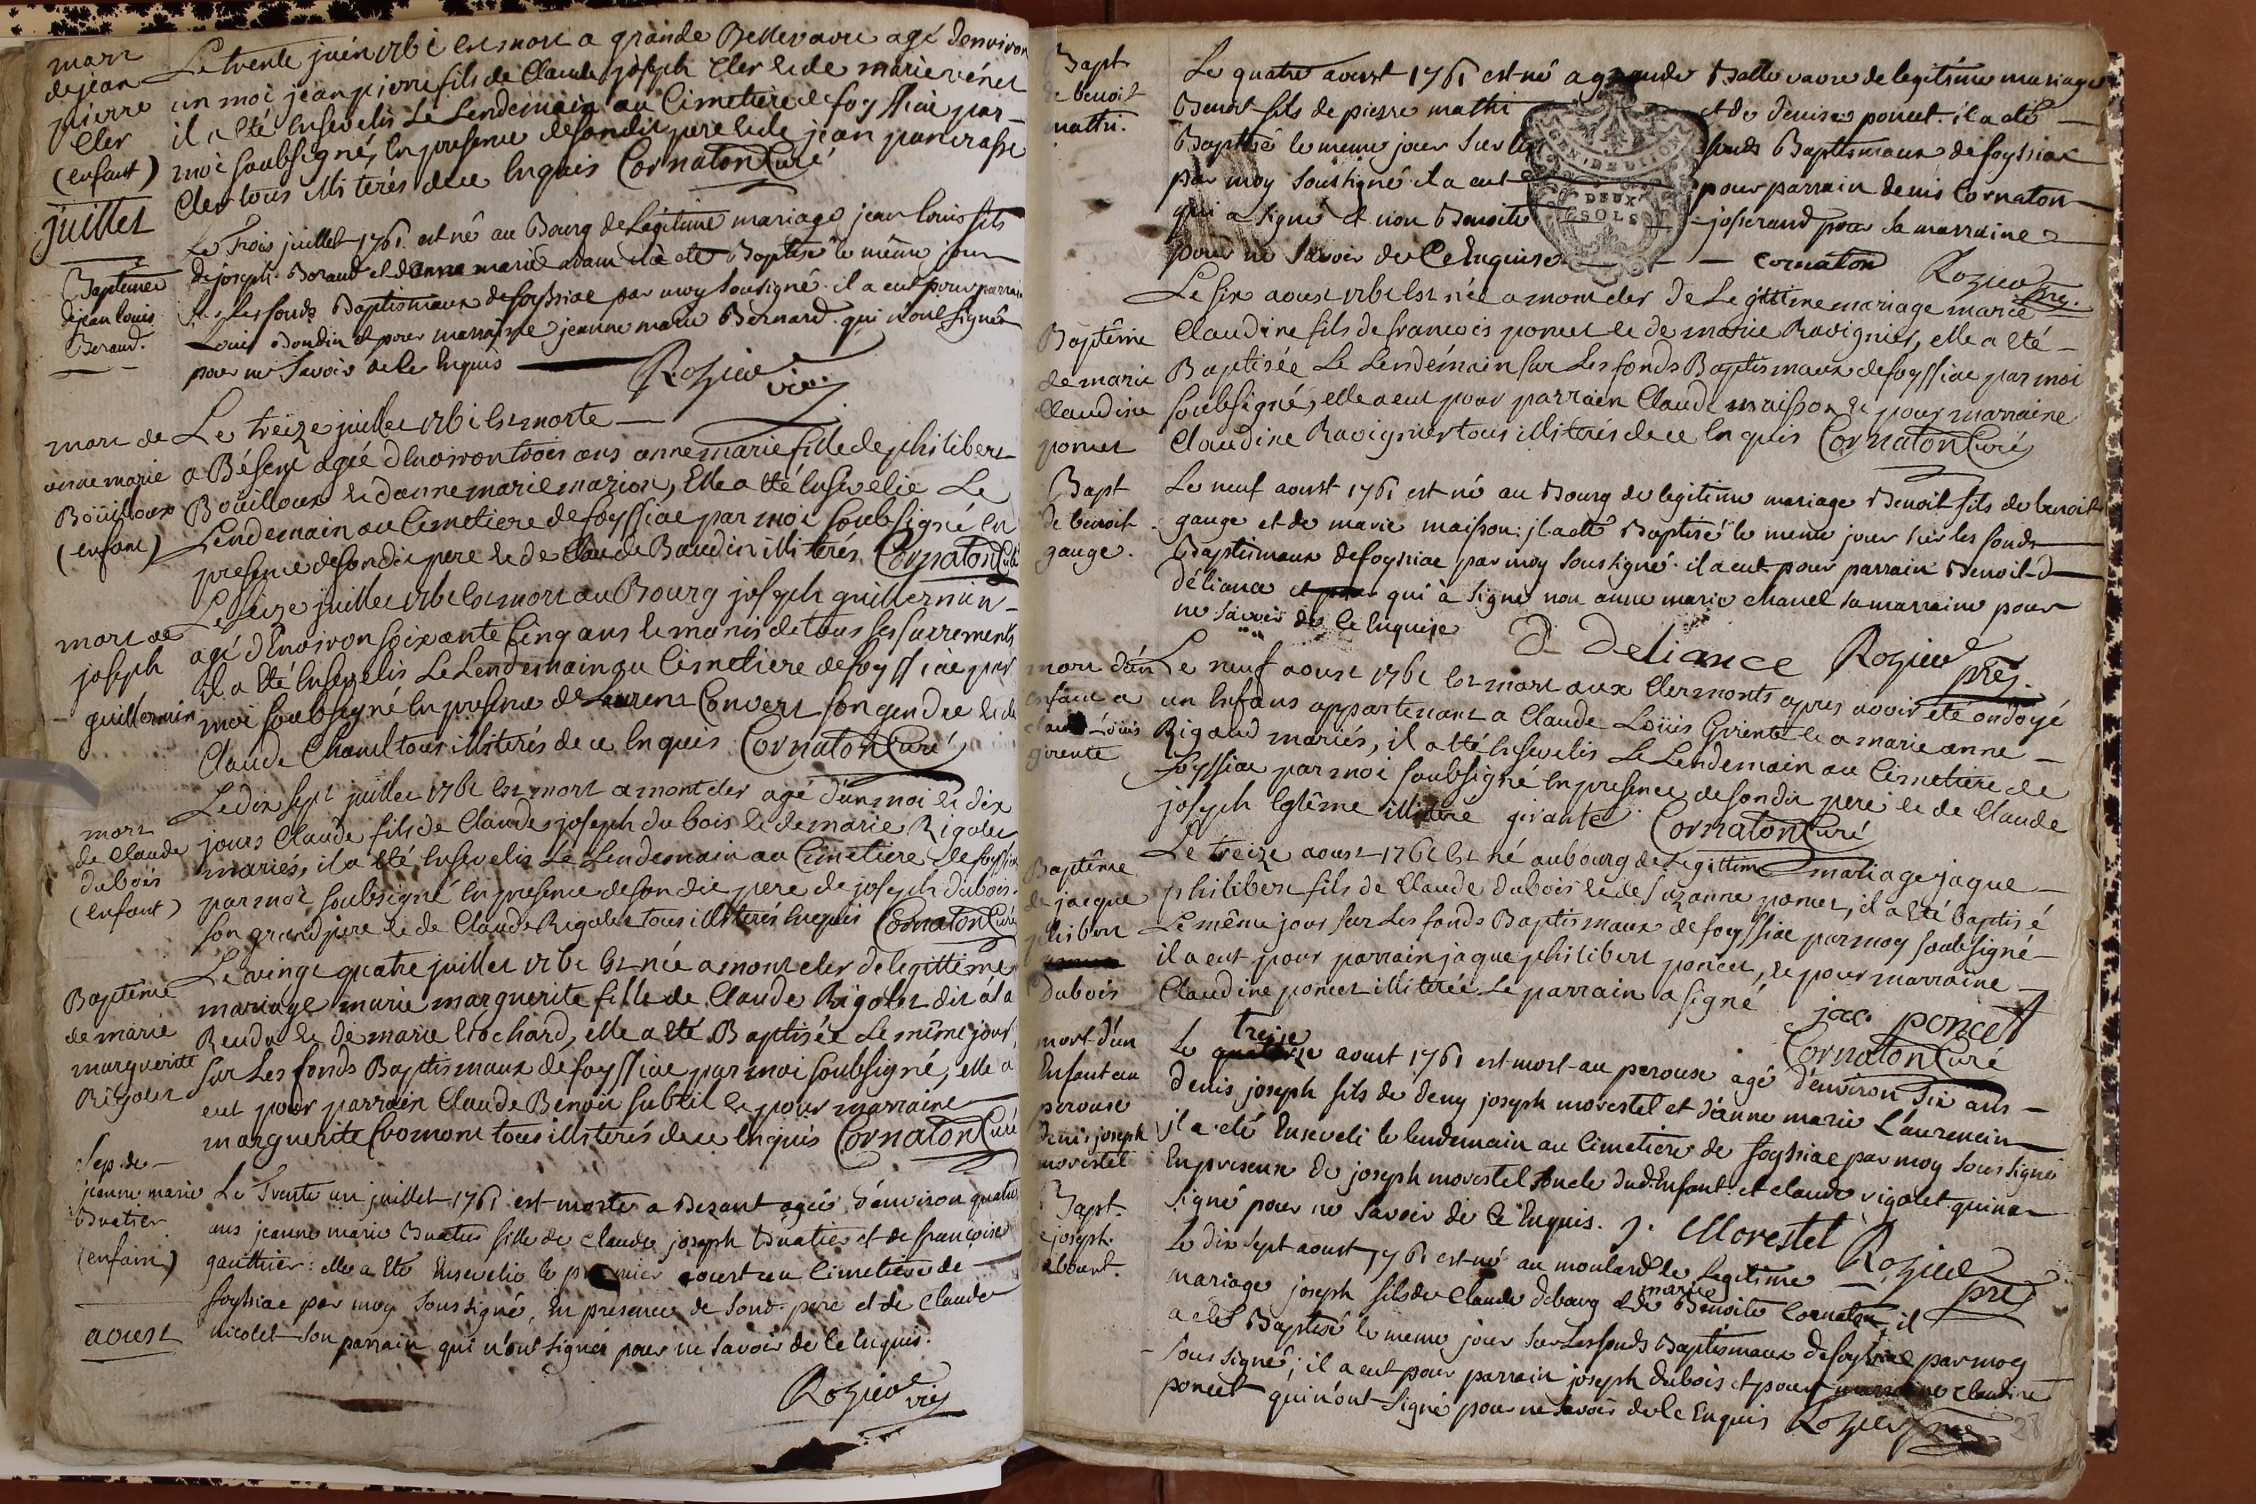 mort
de jean
pierre
Cler
(enfant)
Le trente juin 1761 est mort a grande Bellevavre agé denviron
un moi jean pierre fils de Claude joseph Cler et de marie vénet
il a été Ensevelis Le Lendemain au Cimetiere de foyssiac par
moi soubsigné, En presence de son dit pere et de jean pancrasse
Cler tous illiterés de ce Enquis Cornaton Curé
juillet
Baptême
de jean louis
Beraud.
Le Trois juillet 1761 est né au Bourg de Légitime mariage jean louis fils
de joseph Beraud et d'anne marie adam il a été Baptisé le même jour
sur les fonds Baptismaux de foyssiac par moy sousigné. il a eut pour parrain
Louis Bondin et pour marraine jeanne marie Bernard qui n'ont signés
pour ne Savoir de ce Enquis
Rozier vic.
mort de
anne marie
Boüilloux
(enfant)
Le treize juillet 1761 est morte
a Bésent agée d'Environ trois ans anne marie fille de philibert
Boüilloux et d'anne marie mazion, Elle a été Ensevelie Le
Lendemain au Cimetiere de foyssiac par moi soubsigné En
presence de son dit pere et de Claude Baudin illiterés Cornaton Curé
mort de
joseph
guillermin
Le seize juillet 1761 est mort au Bourg joseph guillermin
agé d'Environ soixante Cinq ans et munis de tous ses sacrements
il a été Ensevelis Le Lendemain au Cimetiere de foyssiac par
moi soubsigné En presence de Laurent Convert son gendre et de
Claude Chanel tous illiterés de ce Enquis Cornaton Curé
mort
de Claude
dubois
(Enfant)
Le dix sept juillet 1761 est mort a montcler agé d'un moi et dix
jours Claude fils de Claude joseph du bois et de marie Rigolet
mariés, il a été Ensevelis Le Lendemain au Cimetiere de foyssiac
par moi soubsigné En presence de son dit pere de joseph dubois
son grand pere et de Claude Rigolet tous illiterés Enquis Cornaton Curé
Baptême
de marie
marguerite
Rigolet
Le vingt quatre juillet 1761 est née a montcler de legittime
mariage marie marguerite fille de Claude Rigolet dit à la
Rendu et de marie Brochard, elle a été Baptisée Le même jour
sur Les fonds Baptismaux de foyssiac par moi soubsigné, elle a
eut pour parrain Claude Benoit subtil et pour marraine
marguerite fromont tous illiterés de ce Enquis Cornaton Curé
Sep. de
jeanne marie
Buatier
(enfant)
Le Trente un juillet 1761 est morte a Bezant agée d'environ quatre
ans jeanne marie Buatier fille de claude joseph Buatier et de françoise
gauthier: elle a été Ensevelie le premier aoust au Cimetiere de
foyssiac par moy Soussigné, En presence de sond. pere et de claude
nicolet son parrain qui n'ont signés pour ne Savoir de ce Enquis.
aoust
Rozier vic.
Bapt.
de benoit
mathi.
Le quatre aoust 1761 est né a grande Belle vavre de legitime mariage
Benoit fils de pierre mathi et de denise poncet. il a été
GEN. DE DIJON
Baptisé le meme jour sur les fonds Baptismaux de foyssiac
par moy soussigné. il a eut pour parrain denis Cornaton
DEUX
SOLS
qui a signé et non Benoite josserand pour sa marraine
pour ne Savoir de Ce Enquise
cornaton
Rozier ptre.
Baptême
de marie
Claudine
poncet
Le six aoust 1761 est née a montcler de Legittime mariage marie
Claudine fils de francois poncet et de marie Ravignier, elle a été
Baptisée Le Lendemain sur Les fonds Baptismaux de foyssiac par moi
soubsigné, elle a eut pour parrain Claude maisson et pour marraine
Claudine Ravignier tous illiterés de ce Enquis Cornaton Curé
Bapt
de benoit
gauge.
Le neuf aoust 1761 est né au Bourg de legitime mariage Benoit fils de benoit
gauge et de marie maisson: il a été Baptisé le meme jour sur les fonds
Baptismaux de foyssiac par moy soussigné. il a eut pour parrain Benoit D
déliance qui à signé non anne marie chanel sa marraine pour
ne savoir de Ce Enquise
D Deliance Rozier ptre.
mort d'un
enfant a
Claude Loüis
girente
Le neuf aoust 1761 est mort aux Clermonts apres avoir été ondoyé
un Enfans appartenant a Claude Loüis Girente et a marie anne
Rigaud mariés, il a été Ensevelis Le Lendemain au Cimetiere de
foyssiac par moi soubsigné En presence de son dit pere et de Claude
joseph Eglême illiteré girante Cornaton Curé
Baptême
de jacque
philibert
Dubois
Le treize aoust 1761 est né au bourg de Legittime mariage jaque
philibert fils de Claude dubois et de suzanne poncet, il a été baptisé
Le même jour sur Les fonds Baptismaux de foyssiac par moy soubsigné
il a eut pour parrain jaque philibert poncet, et pour marraine
Claudine poncet illiterée Le parrain a signé
jac. poncet
Cornaton Curé
mort d'un
Enfant au
perouse
denis joseph
morestel
treize
Le aoust 1761 est mort au perouse agé d'environ six ans
denis joseph fils de deny joseph morestel et d'anne marie Laurencin
il a été Enseveli le lendemain au Cimetiere de foyssiac par moy Soussigné
En presence de joseph morestel oncle dud. Enfant: et claude rigolet qui n'a
signé pour ne Savoir de Ce Enquis. J. Morestel
Rozier ptre
Bapt.
de joseph
debourt.
Le dix sept aoust 1761 est né au moulard de Legitime
mariage joseph fils de Claude debourg et de marie Benoite Cornaton, il
a été Baptisé le meme jour sur les fonds Baptismaux de foyssiac par moy
soussigné; il a eut pour parrain joseph dubois et pour marraine claudine
poncet qui n'ont signé pour ne Savoir de Ce Enquis Rozier ptre
28